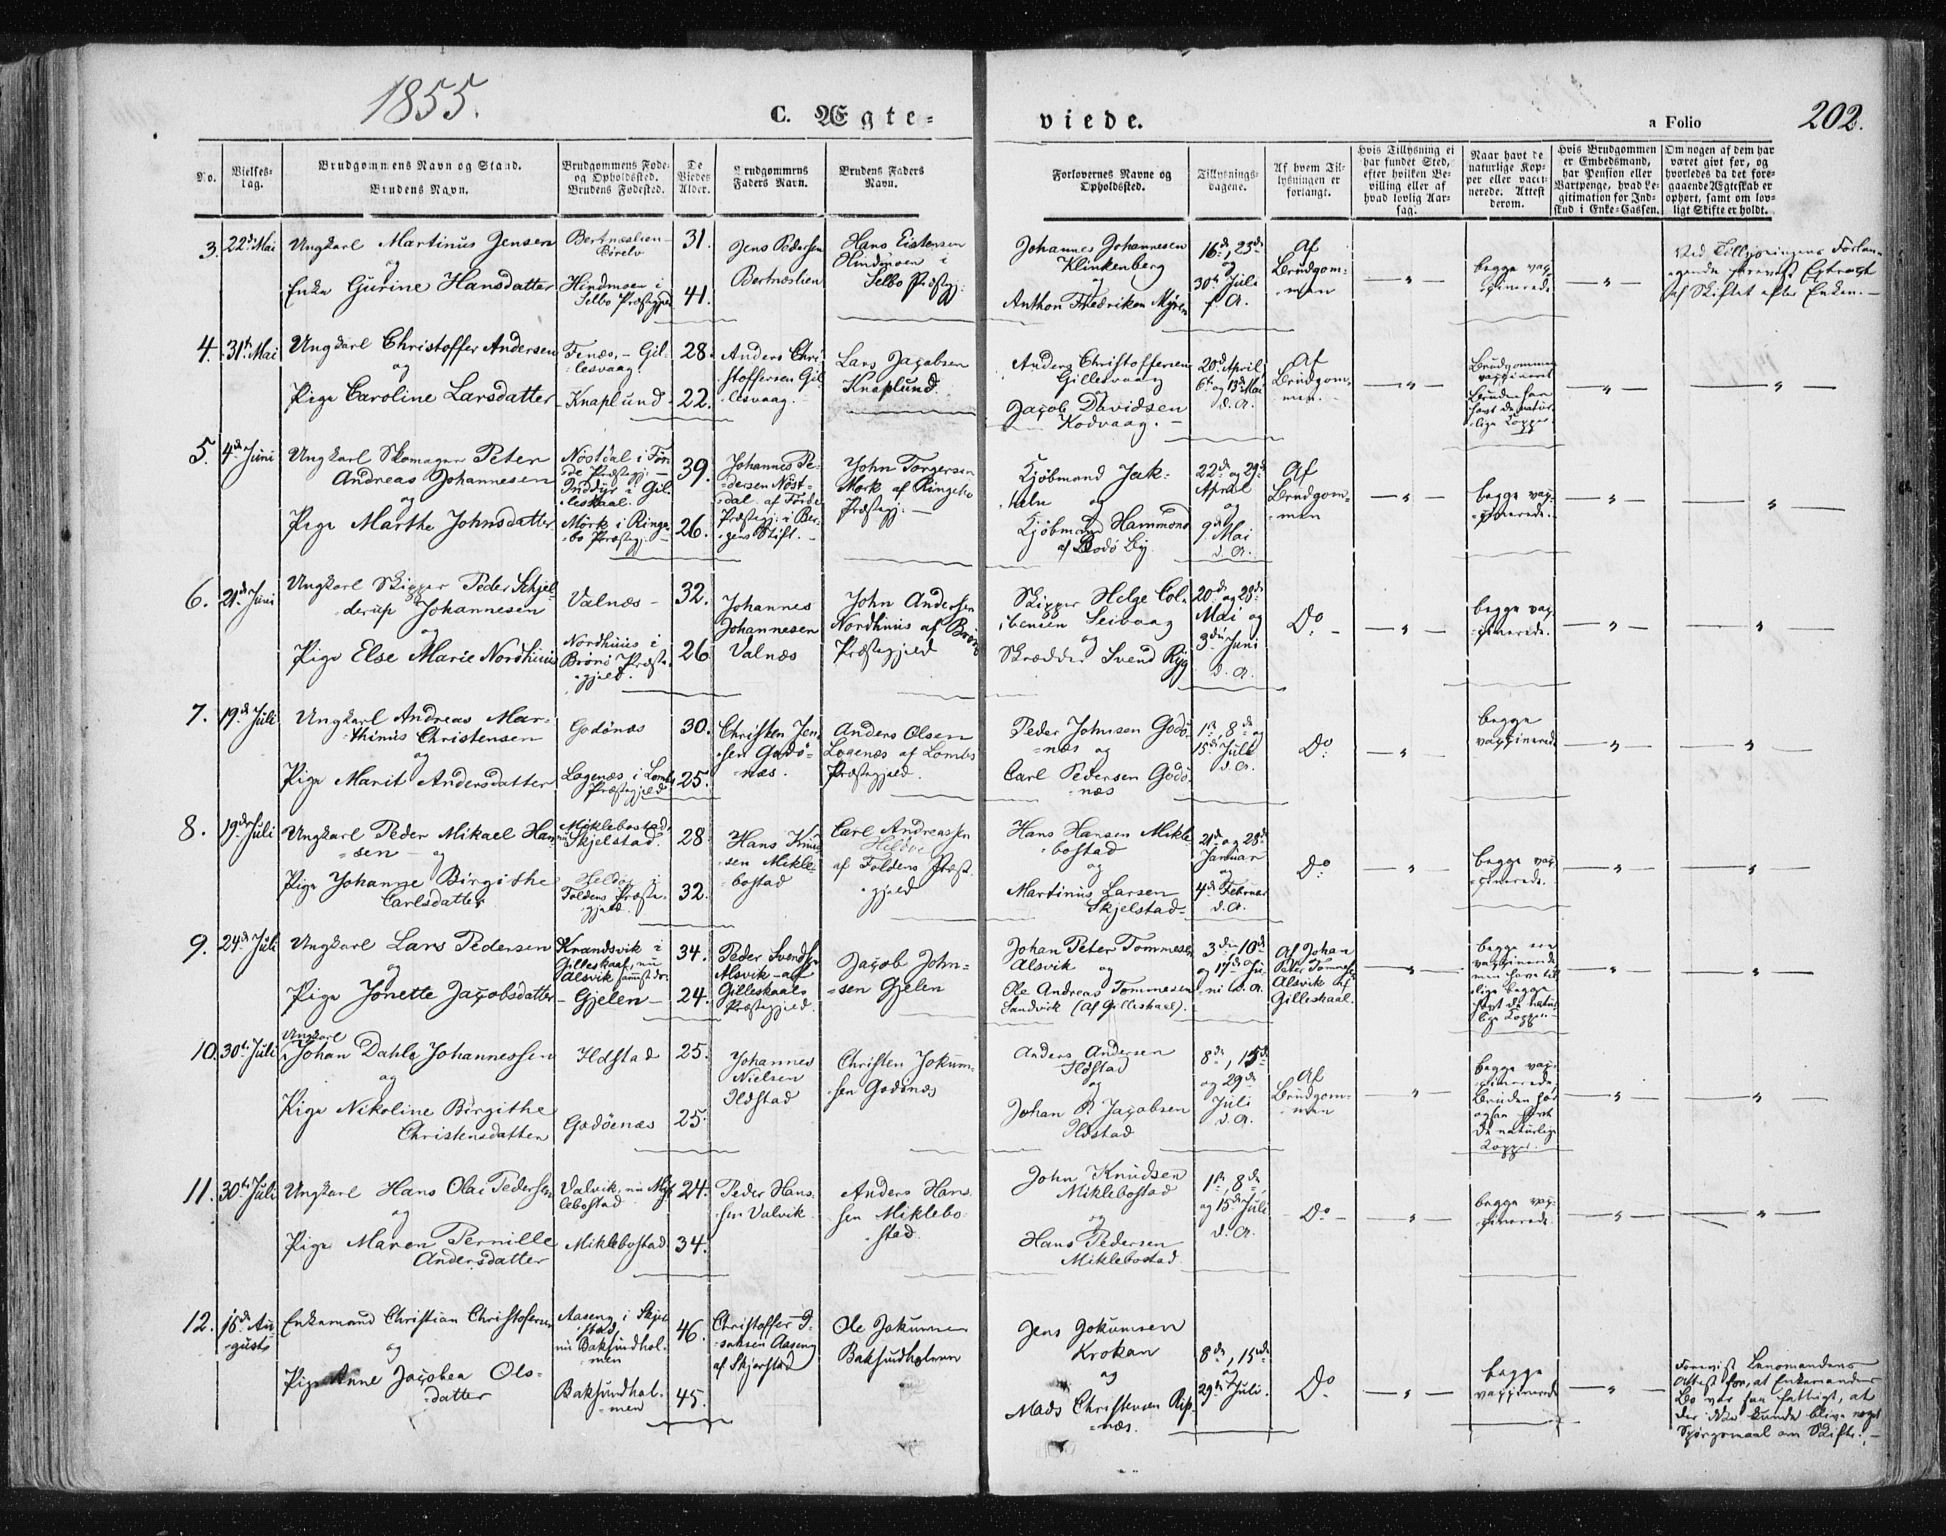 1855.
C. Ægte-
viede.
a Folio
202.
No.
Vielses-
dag.
Brudgommens Navn og Stand.
Brudens Navn.
Brudgommens Føde-
og Opholdssted.
Brudens Fødested.
De
Viedes
Alder.
Brudgommens
Faders Navn.
Brudens Faders
Navn.
Forlovernes Navne og
Opholdssted.
Tillysnings-
dagene.
Af hvem Til-
lysningen er
forlangt.
Hvis Tillysning ei
har fundet Sted,
efter hvilken Be-
villing eller af
hvad lovlig Aar-
sag.
Naar havt de
naturlige Kop-
per eller vacci-
nerede. Attest
derom.
Hvis Brudgommen
er Embedsmand,
har Pension eller
Vartpenge, hvad Le-
gitimation for Ind-
skud i Enke-Cassen.
Om nogen af dem har
været gift før, og
hvorledes da det fore-
gaaende Ægteskab er
ophørt, samt om lov-
ligt Skifte er holdt.
3.
22de Mai
Ungkarl Martinus Jensen
og
Enke Gurine Hansdatter
Hindmoen i
Selbo Præstegjeld
31.
41.
Jens Pedersen
Bertnæslien
Hans Eistensen
Hindmoen i
Selbo Præstgj:
Johannes Johannesen
Klinkenberg
og
Anthon Fredriksen
30te Juli
f. A.
Af
Brudgom-
men
— " —
begge vac-
cinerede
— " —
af Skiftet efter Enken. —
4.
31te Mai
Ungkarl Christoffer Andersen
og
Pige Caroline Larsdatter
Tenæs, - Gil-
lesvaag.
Knaplund
28.
22.
Anders Chri-
stoffersen Gil-
lesvaag.
Lars Jacobsen
Knaplund
Anders Christoffersen
Gillesvaag
Jacob Davidsen
Kodvaag. —
20de April,
6te og 13de Mai
d. A.
Af
Brudgom-
men.
— " —
Brudgommen
vaccineret
Bruden har
havt de natur-
lige Kopper
— " —
— " —
5.
4de Juni
Ungkarl Skomager Peter
Andreas Johannesen
og
Pige Marthe Johnsdatter
Nöstdal i För-
de Præstegj: —
Inddyr i Gil-
leskaal.
Mörk i Ringe-
bo Præstegj. —
39.
26.
Johannes Pe-
dersen Nöst-
dal af Förde
Præstegj: i Ber-
gens Stift. —
John Torgersen
Mörk af Ringebo
Præstegj: —
Kjöbmand Jak-
heln og
Kjöbmand Hammond
af Bodö By.
22de og 29de
April
og
9de Mai
d. A.
Af
Brudgom-
men
— " —
begge vac-
cinerede.
— " —
"
6.
21de Juni
Ungkarl Skipper Peder Schjel-
derup Johannesen
og
Pige Else Marie Nordhuus
Valnæs —
Nordhuus i
Brönö Præste-
gjeld.
32.
26
Johannes
Johannesen
Valnæs
John Andersen
Nordhuus af Brönö
Præstegjeld
Skipper Helge Col-
bensen Seivaag
og
Skrædder Svend Ryg
20de og 28de
Mai og
3die Juni
d. A.
Do —
— " —
begge vac-
cinerede.
— " —
"
7.
19de Juli
Ungkarl Andreas Mar-
thinus Christensen
og
Pige Marit Andersdatter
Godönæs
Lagenæs i Lomb
Præstegjeld
30.
25.
Christen Jen-
sen Godö-
næs.
Anders Olsen
Lagenæs af Lombs
Præstegjeld.
Peder Johnsen Godö-
næs og
Carl Pedersen Godö-
næs
1te, 8de og
15de Juli
d. A.
Do
"
begge
vaccinerede
— " —
"
8.
19de Juli
Ungkarl Peder Mikael Han-
sen og
Pige Johanne Birgithe
Carlsdatter
Miklebostad,
nu Skjelstad.
Heldö i
Foldens Præste-
gjeld.
28.
32.
Hans Knud-
sen Mikle-
bostad
Carl Andreassen
Heldö
af Foldens Præst-
gjeld
Hans Hansen Mikle-
bostad
og
Martinus Larsen
Skjelstad
21de og 28de
Januar
og
4de Februar
d. A.
Do
"
begge vac-
cinerede.
"
"
9.
24de Juli
Ungkarl Lars Pedersen
og
Pige Jonette Jacobsdatter
Krandsvik i
Gilleskaal, nu
Alsvik sammesteds.
— Gjelen —
34.
24.
Peder Svendsen
Alsvik — af
Gilleskaals
Præstegjeld.
Jacob John-
sen Gjelen
Johan Peter Tommesen
Alsvik og
Ole Andreas Tommesen
Sandvik (af Gilleskaal).
3die, 10de
og 17de Ju-
ni d. A.
Af Johan
Peter Tommesen
Alsvik af
Gilleskaal.
"
begge ere
vaccinerede
men have til-
lige begge
havt de natur-
lige Kopper
"
"
10.
30te Juli
Ungkarl
Johan Dahle Johannessen
og
Pige Nikoline Birgithe
Christensdatter
Ildstad
Godöenæs
25.
25.
Johannes
Nielsen
Ildstad
Christen Jokum-
sen Godönæs
Anders Andersen
Ildstad
og
Johan P. Jacobsen
Ildstad
8de, 15de
og 29de
Juli
d. A.
Af
Brudgom-
men
"
begge vac-
cinerede,
Bruden har
ogsaa havt
de naturlige
Kopper.
"
"
11.
30te Juli
Ungkarl Hans Olai Pedersen
og
Pige Maren Pernille
Andersdatter
Valvik, nu Mik-
lebostad
Miklebostad
24.
34.
Peder Han-
sen Valvik
Anders Han-
sen Miklebo-
stad.
John Knudsen
Miklebostad
og
Hans Pedersen
Miklebostad.
1te, 8de,
og 15de Juli
d. A.
Do —
"
begge vac-
cinerede.
"
"
12.
16de Au-
gust
Enkemand Christian Christofersen
og
Pige Anne Jacobea Ols-
datter
Aaseng i Skjer-
stad,
nu Baksundhol-
men
Baksundhol-
men
46.
45.
Christoffer I-
saksen Aaseng
af Skjerstad
Ole Jokumsen
Baksundholmen
Jens Jokumsen
Krokan
og
Mads Christensen Rip-
næs.
8de, 15de
og
29de Juli.
Do
"
begge
vaccinerede
"
Forevist Lensmandens
Attest for, at Enkemandens
Bo var saa fattigt, at
der ikke kunde blive noget
Spörgsmaal om Skifte. —